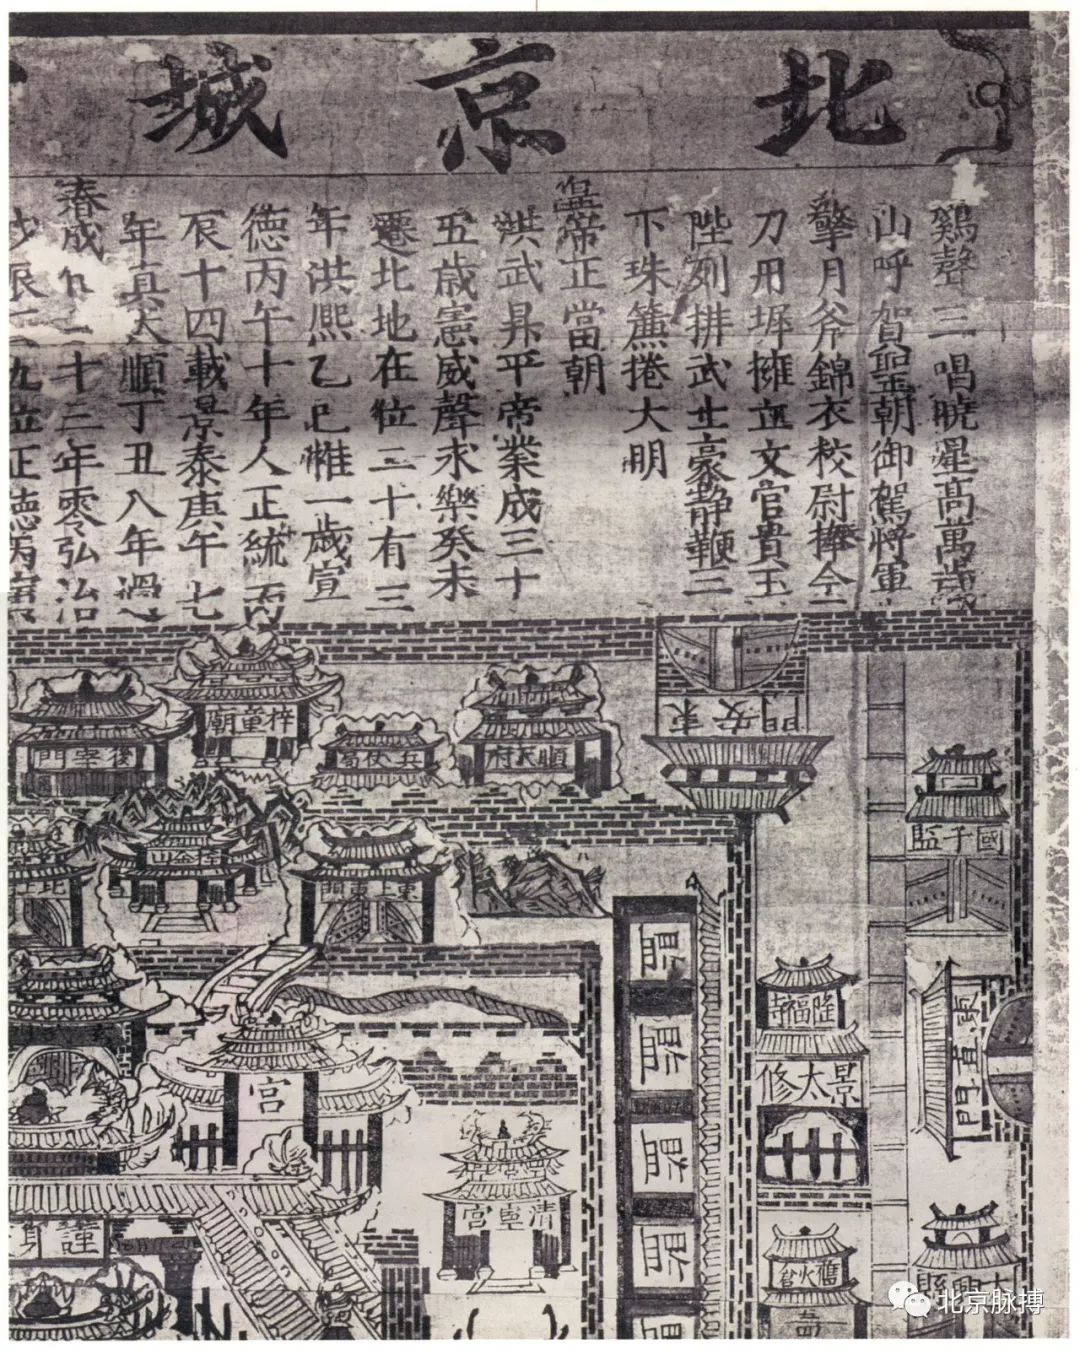 北京城
鷄聲三唱曉星高萬歲
山呼賀聖朝御駕將軍
擎月斧錦衣校尉捧金
刀丹墀擁並文官貴玉
陛列排武士豪静鞭三
下珠簾捲大明
皇帝正當朝
洪武昇平帝業成三十
五歲憲威聲永樂癸未
遷北地在位二十有三
年洪熙乙巳惟一歲宣
德丙午十年人正統丙
辰十四載景泰庚午七
年真天順丁丑八年過
春成化二十三年零弘治
九位正德丙寅
東安門
順天府
兵仗局
梓童廟
後宰門
國子監
東上東門
北上
監
監
監
監
監
隆福寺
景太修
東直門
宫
清寧宮
謹身
舊火倉
大興縣
北京脉搏